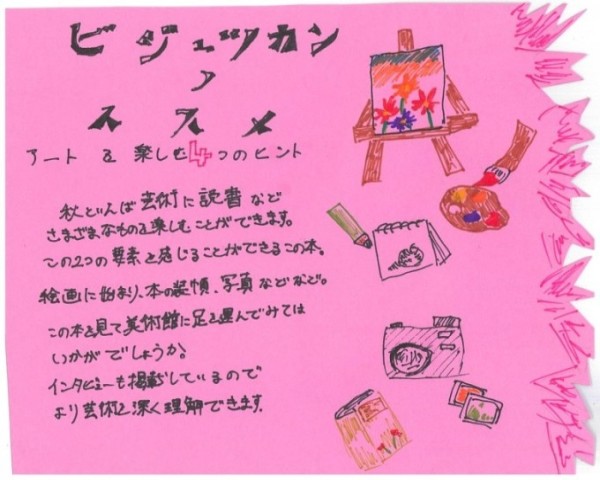 ビジュツカン
ノ
ススメ
アートを楽しむ4つのヒント
秋といえば芸術に読書など
さまざまなものを楽しむことができます。
この2つの要素を感じることができるこの本。
絵画に始まり、本の装幀、写真などなど。
この本を見て美術館に足を運んでみては
いかがでしょうか。
インタビューも掲載しているので
より芸術を深く理解できます。